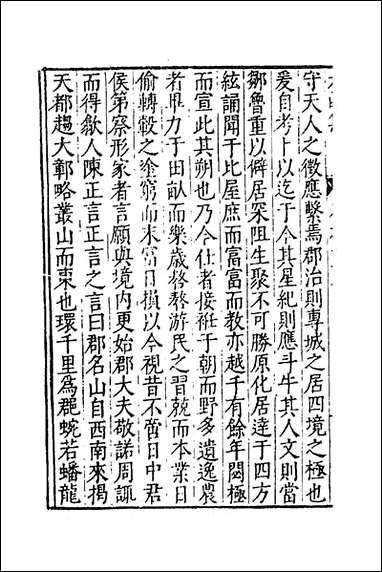 守天人之徵應繫焉郡治則專城之居四境之極也
爰自考卜以迄于今其星紀則應斗牛其人文則當
鄒魯重以僻居深阻生聚不可勝原化居達于四方
絃誦聞于比屋庶而富富而教亦越千有餘年閱極
而宣此其朔也乃今仕者接袵于朝而野多遺逸農
者畀力于田畝而樂歲嗸嗸游民之習兢而本業日
偷轉轂之塗窮而末富日損以今視昔不啻日中君
侯第察形家者言願與境内更始郡大夫敬諾周諏
而得歙人陳正言正言之言曰郡名山自西南來揭
天都趨大鄣略叢山而東也環千里爲郡蜿若蟠龍